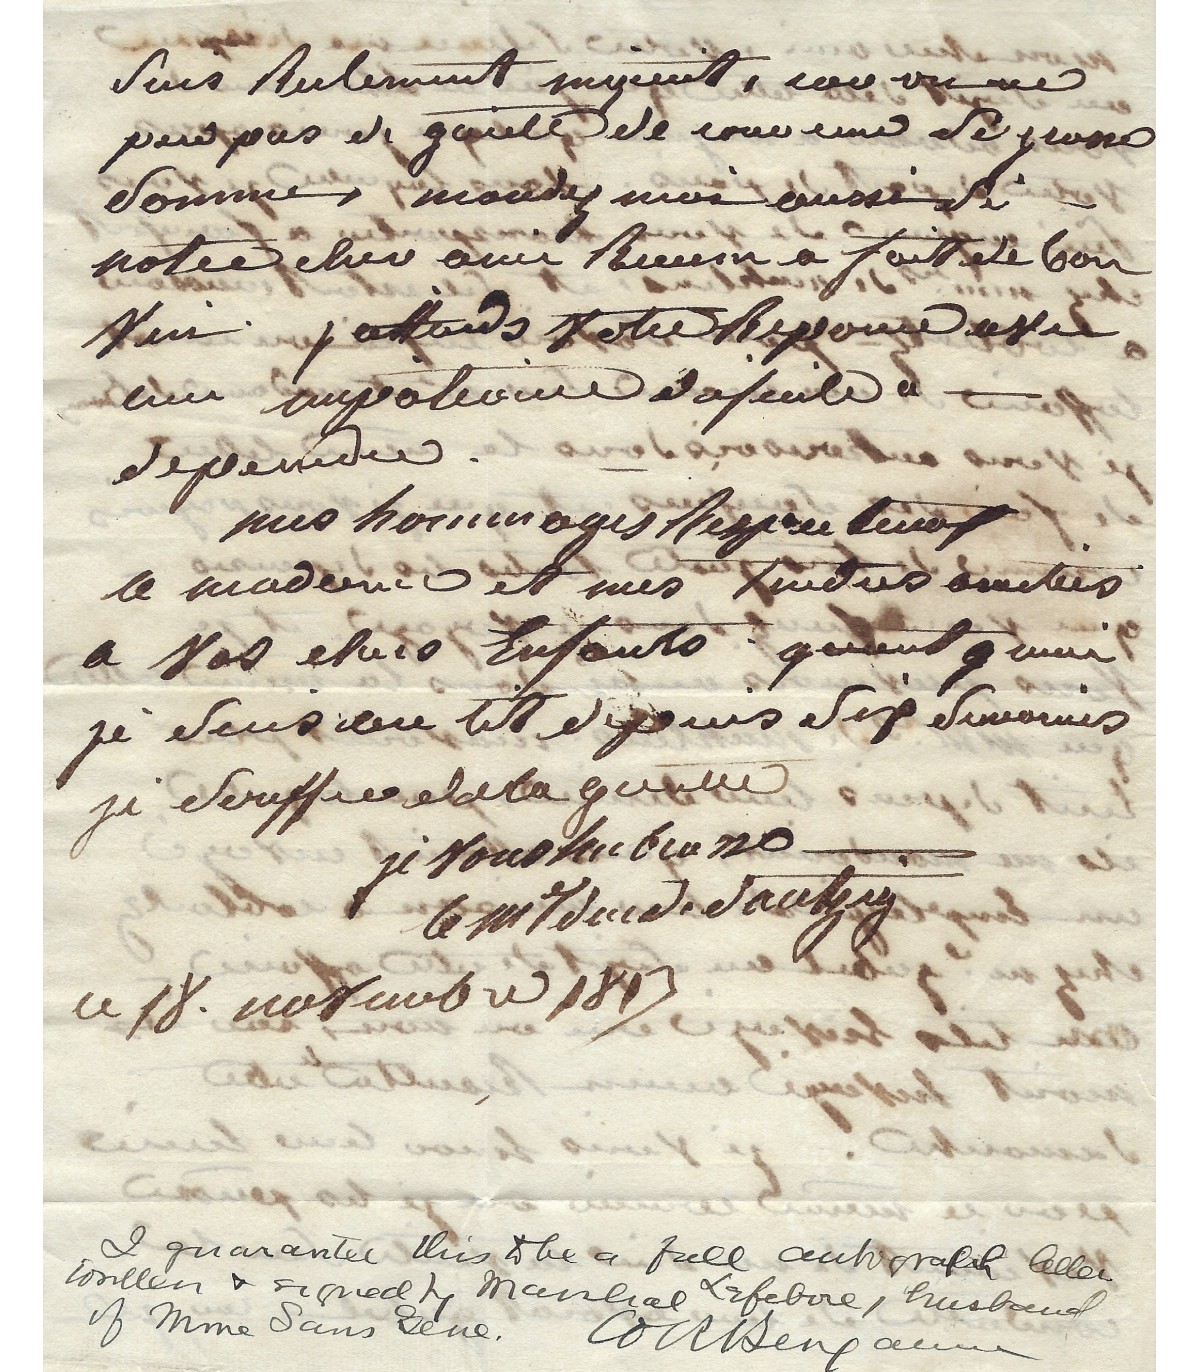 suis seulement inquiet, car on ne
perd pas de gaieté de coeur une si grosse
somme, mandez moi aussi si
notre cher ami a fait de bon
vin. j attends votre reponse avec
une impatiance dificile a
depeindre.
mes hommages Respectueux
a madame et mes tendres amities
a vos chers Enfants. quant a moi
je suis au lit depuis dix semaines
je souffre de la goutte
je vous embrasse
le Mal duc de dantzig
ce 18. novembre 1817
I guarantee this to be a full autograph letter
written & signed by Marshal Lefebvre, husband
of Mme Sans Gene. W R Benjamin